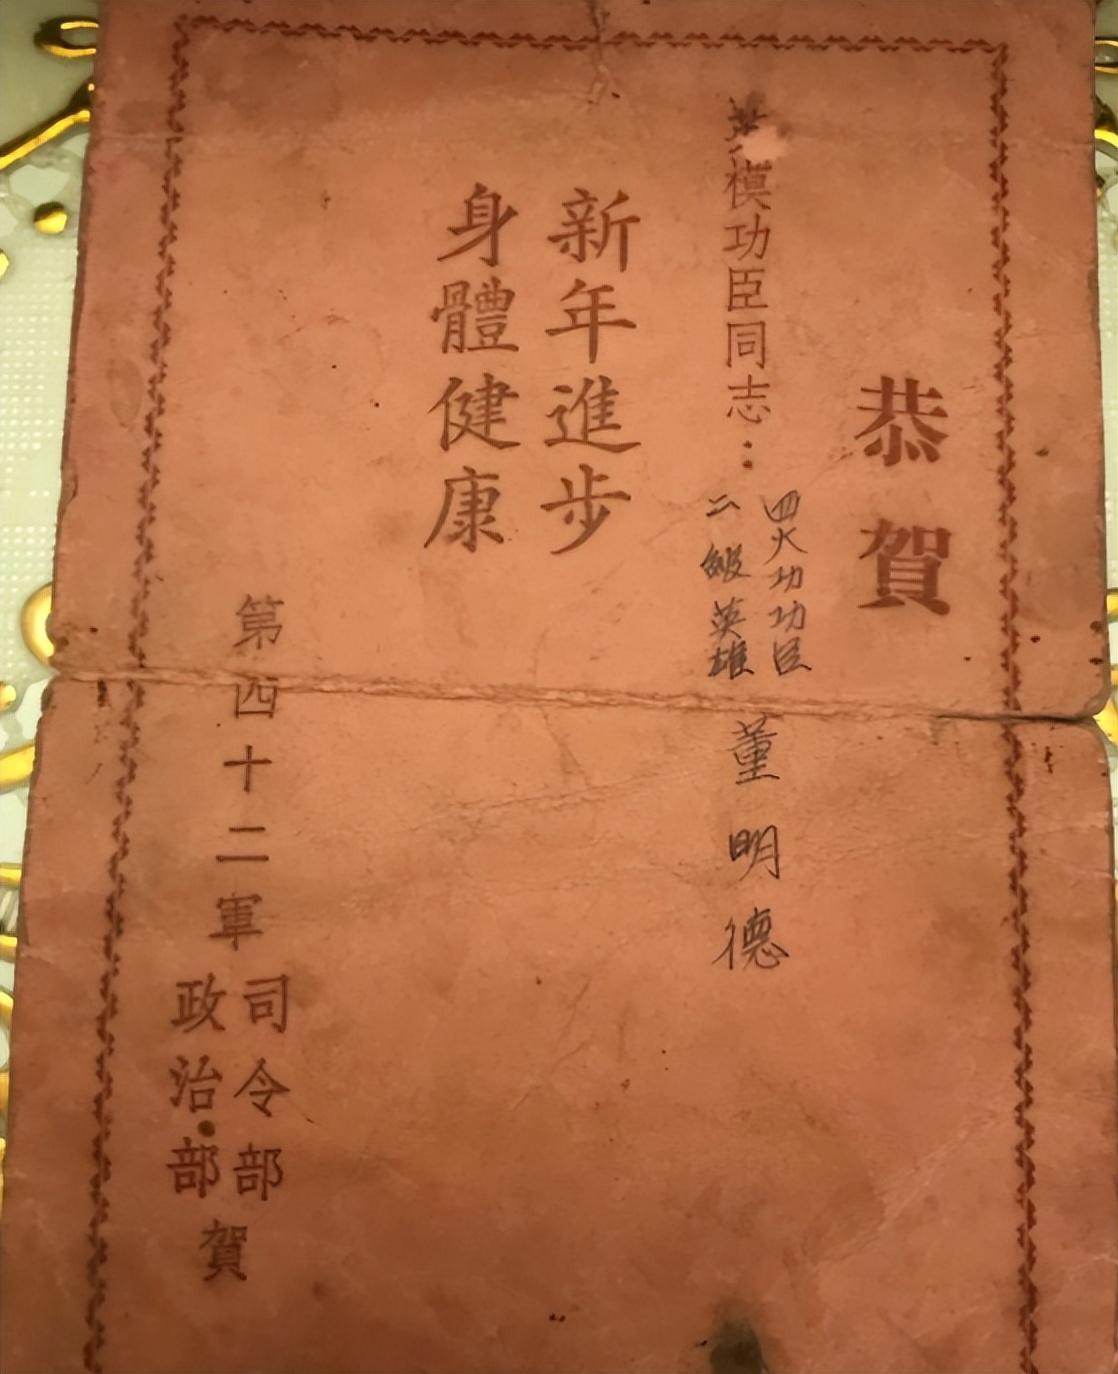 恭賀
英模功臣同志：
四大功功臣
二級英雄
董明德
新年進步
身體健康
第四十二軍
司令部
政治部
賀